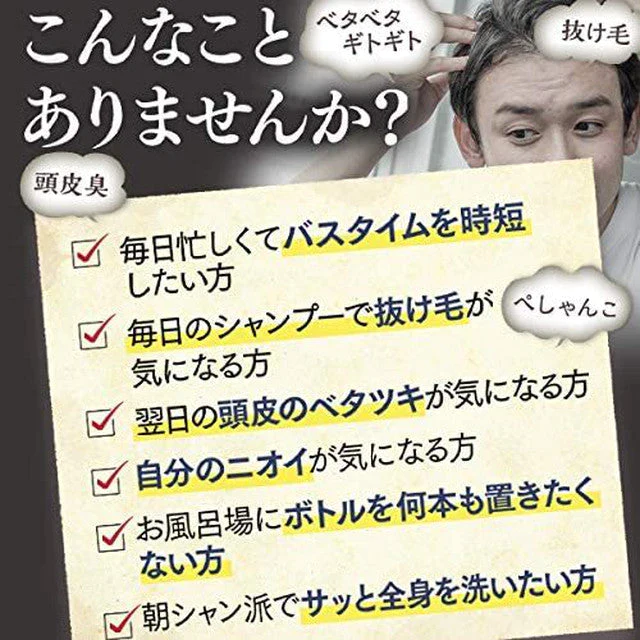 こんなこと
ありませんか?
ベタベタ
ギトギト
抜け毛
頭皮臭
毎日忙しくてバスタイムを時短
したい方
毎日のシャンプーで抜け毛が
気になる方
ぺしゃんこ
翌日の頭皮のベタツキが気になる方
自分のニオイが気になる方
お風呂場にボトルを何本も置きたく
ない方
朝シャン派でサッと全身を洗いたい方